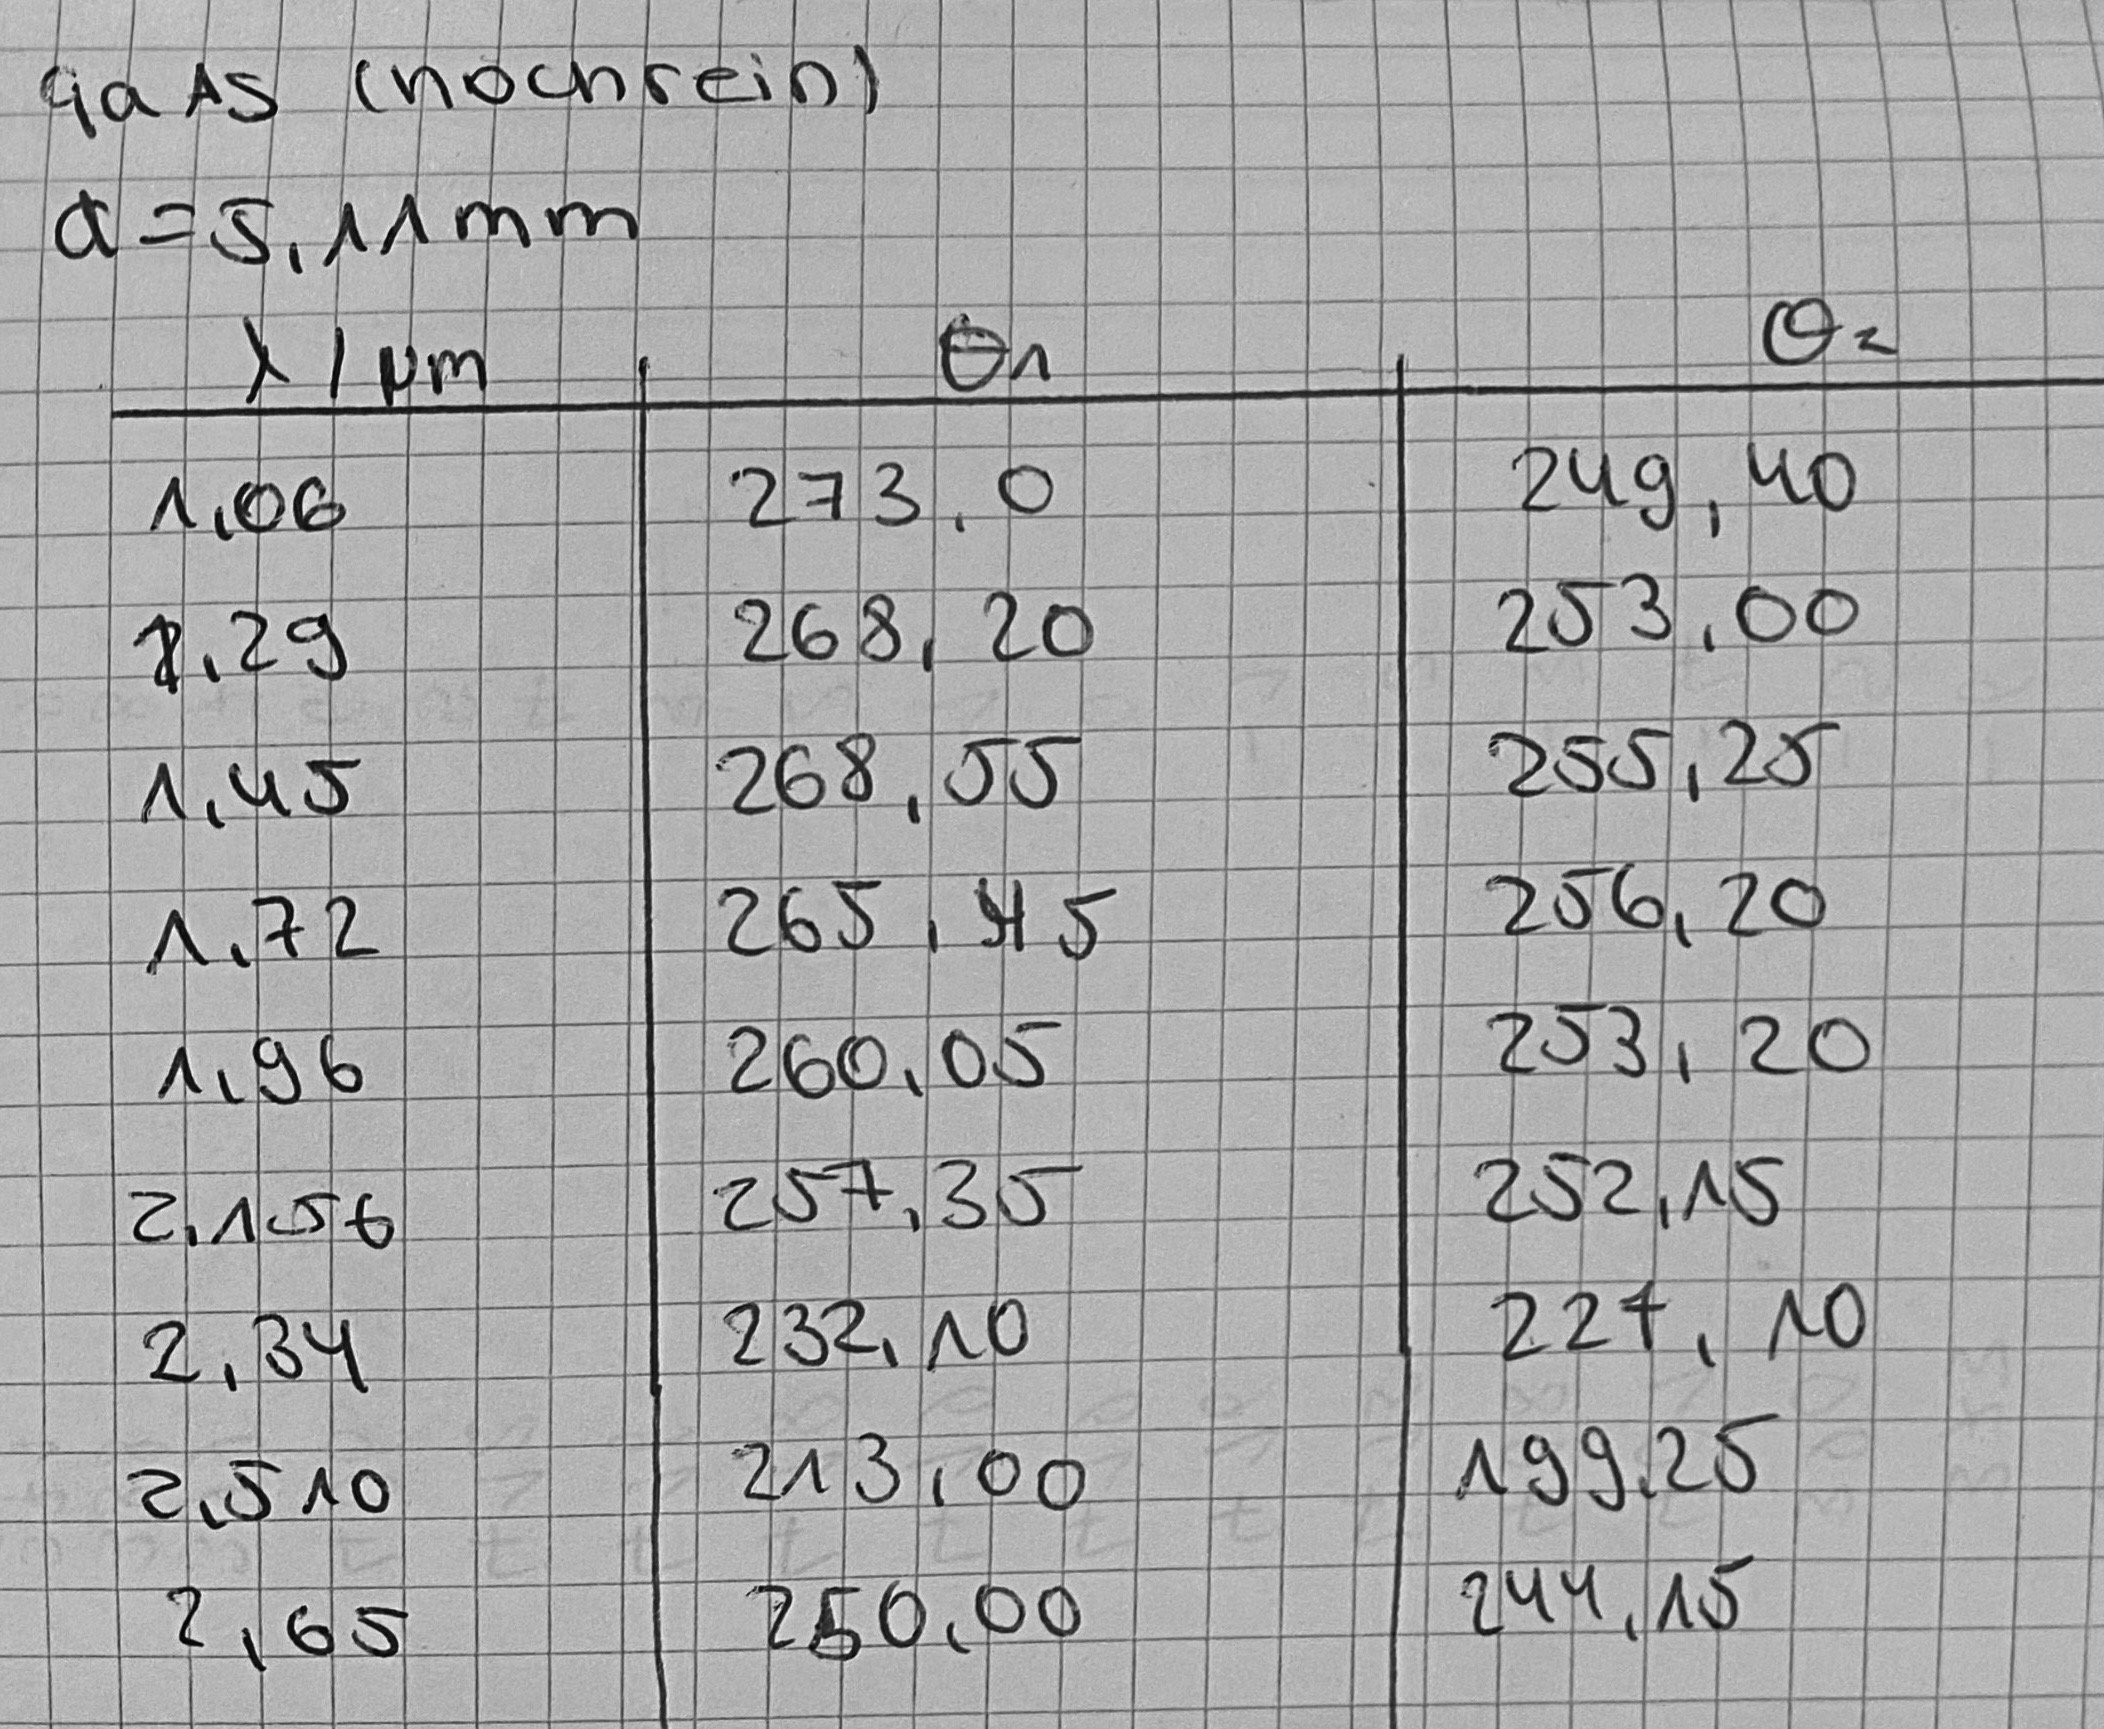 GaAs (hochrein)
d = 5,11mm
λ / μm θ1 θ2
1,06 273,0 249,40
1,29 268,20 253,00
1,45 268,55 255,25
1,72 265,45 256,20
1,96 260,05 253,20
2,156 257,35 252,15
2,34 232,10 227,10
2,510 213,00 199,25
2,65 250,00 244,15